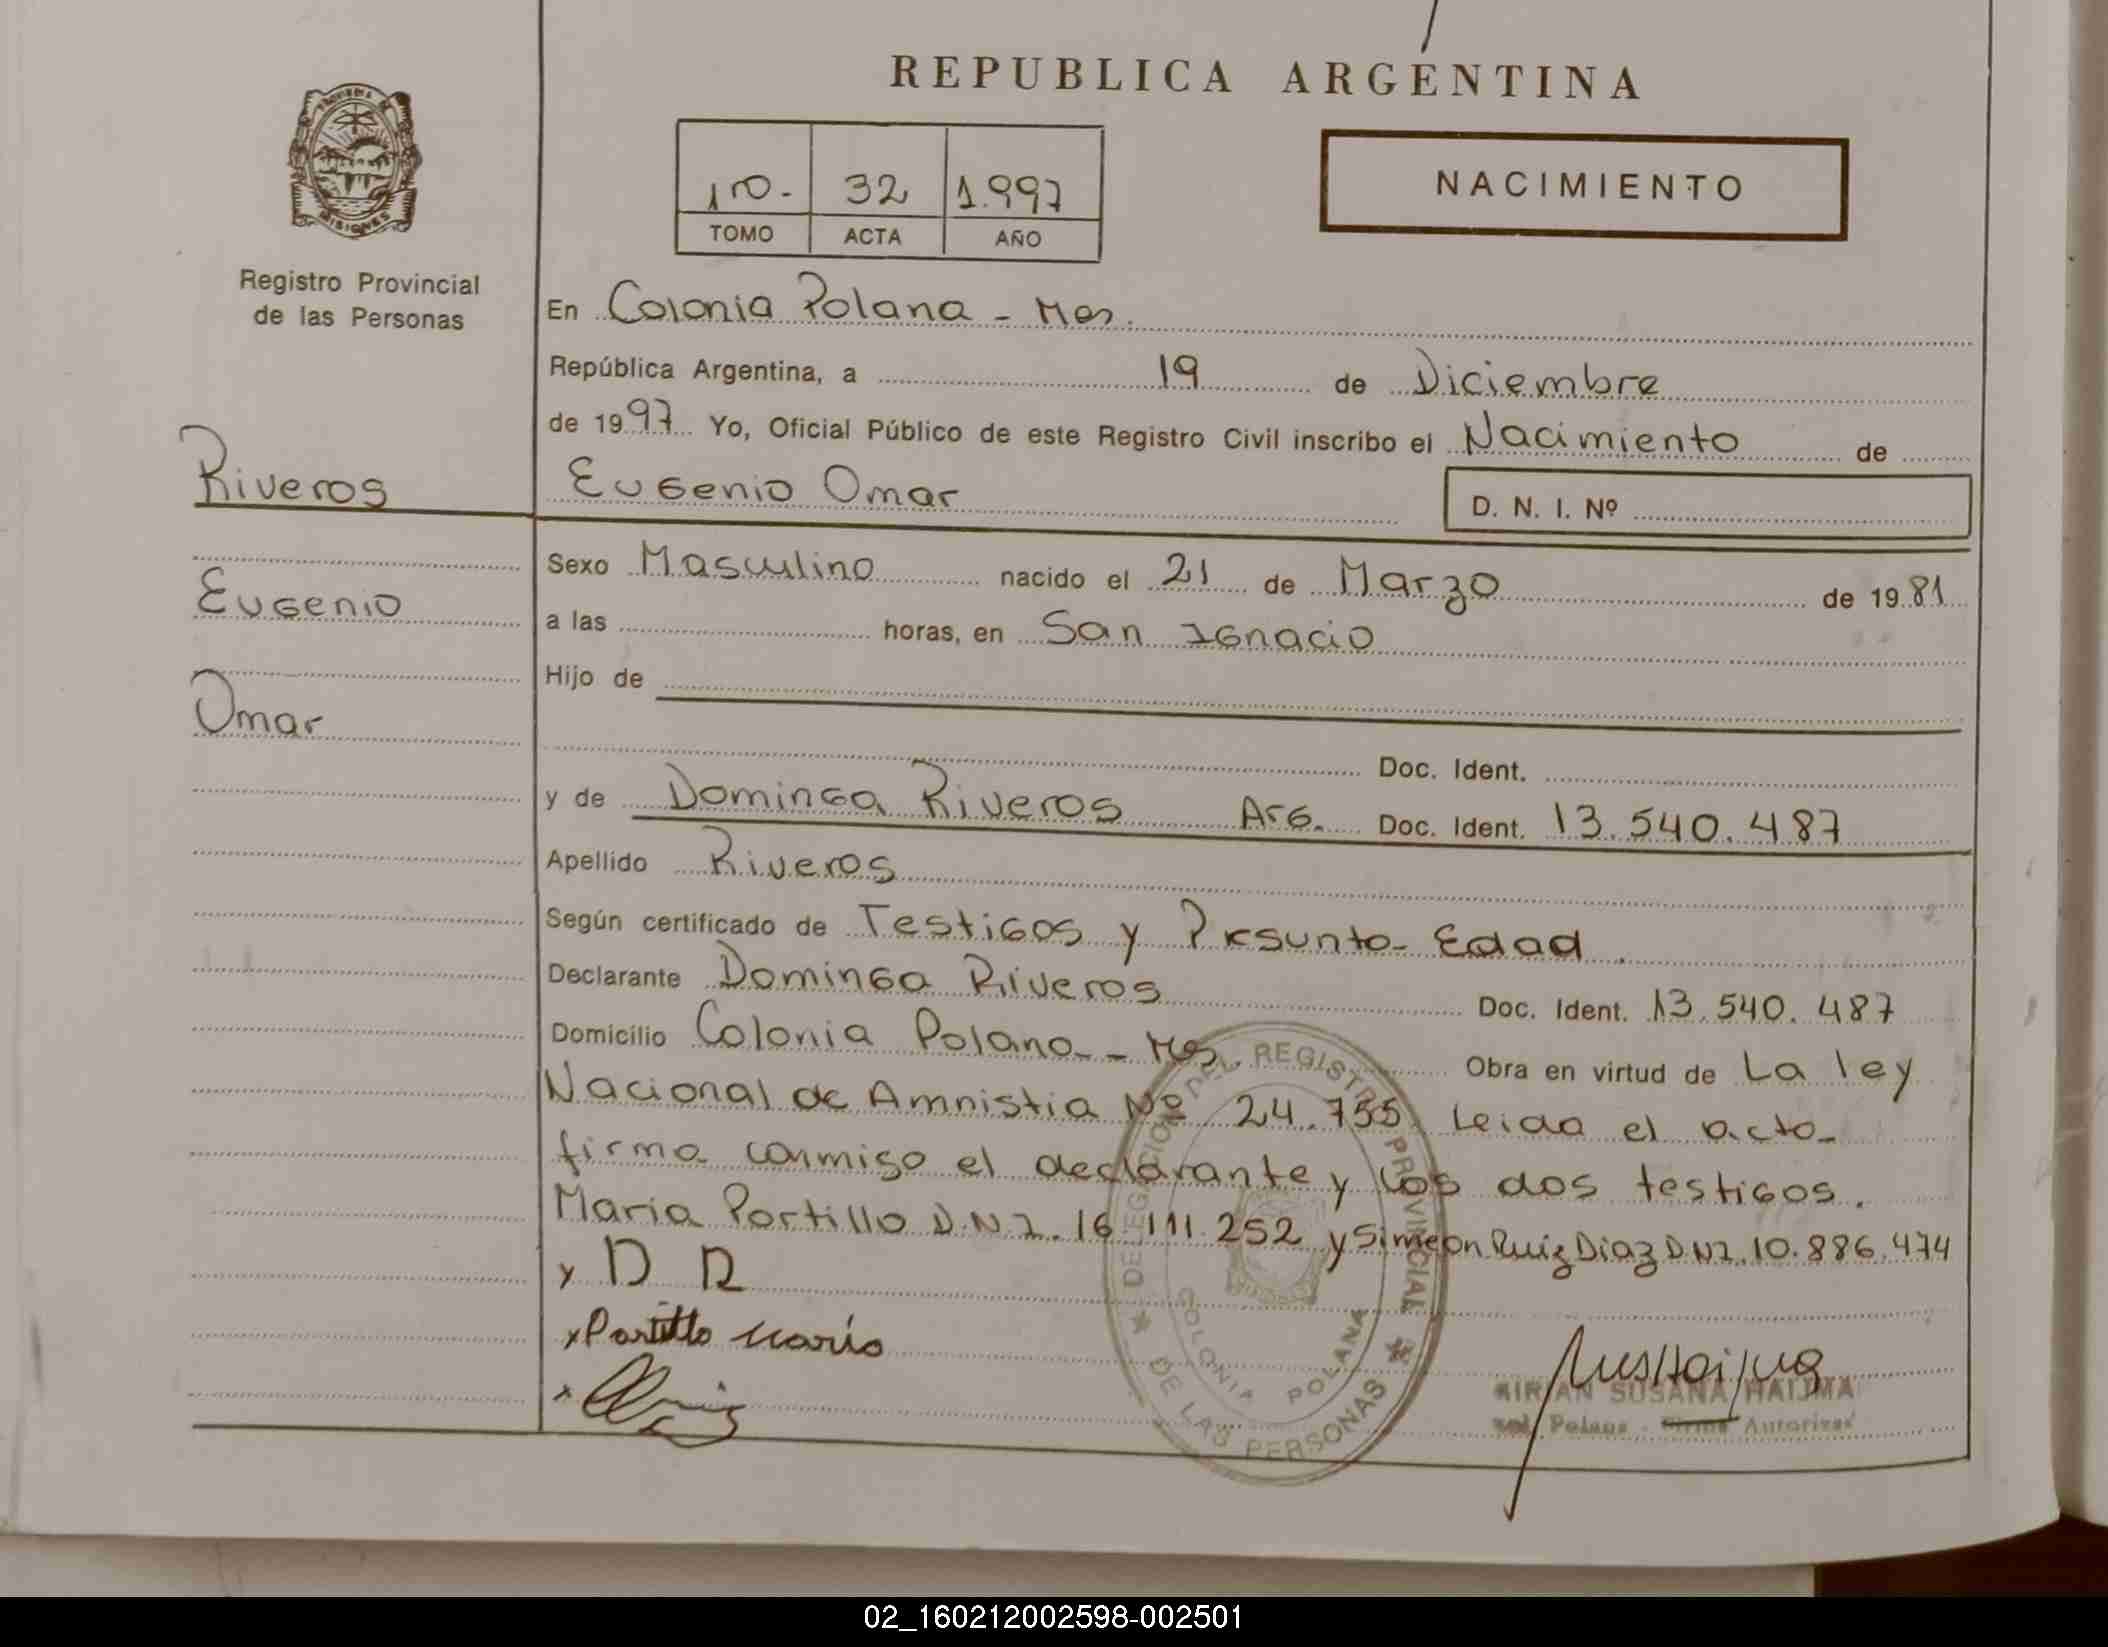 REPUBLICA ARGENTINA
PROVINCIA DE
MISIONES
Registro Provincial
de las Personas
1ro.- 32 1.997
TOMO ACTA AÑO
NACIMIENTO
En Colonia Polana - Mes.
República Argentina, a 19 de Diciembre
de 1997 Yo, Oficial Público de este Registro Civil inscribo el Nacimiento de
Riveros
Eugenio Omar
D. N. I. Nº
Sexo Masculino nacido el 21 de Marzo de 1981
Eugenio
a las horas, en San Ignacio
Hijo de
Omar
Doc. Ident.
y de Dominga Riveros Arg. Doc. Ident. 13.540.487
Apellido Riveros
Según certificado de Testigos y Presunta Edad.
Declarante Dominga Riveros Doc. Ident. 13.540.487
Domicilio Colonia Polana - Mes. Obra en virtud de La ley
Nacional de Amnistia Nº 24.755. Leida el acta
firma conmigo el declarante y los dos testigos.
Maria Portillo D.N.I. 16.111.252 y Simeon Ruiz Diaz DNI. 10.886.474
x D R
x Portillo Maria
x
DELEGACION DEL REGISTRO PROVINCIAL
DE LAS PERSONAS
COLONIA POLANA
MIRIAN SUSANA HAIJMA
Col. Polana - Firma Autorizad
02_160212002598-002501